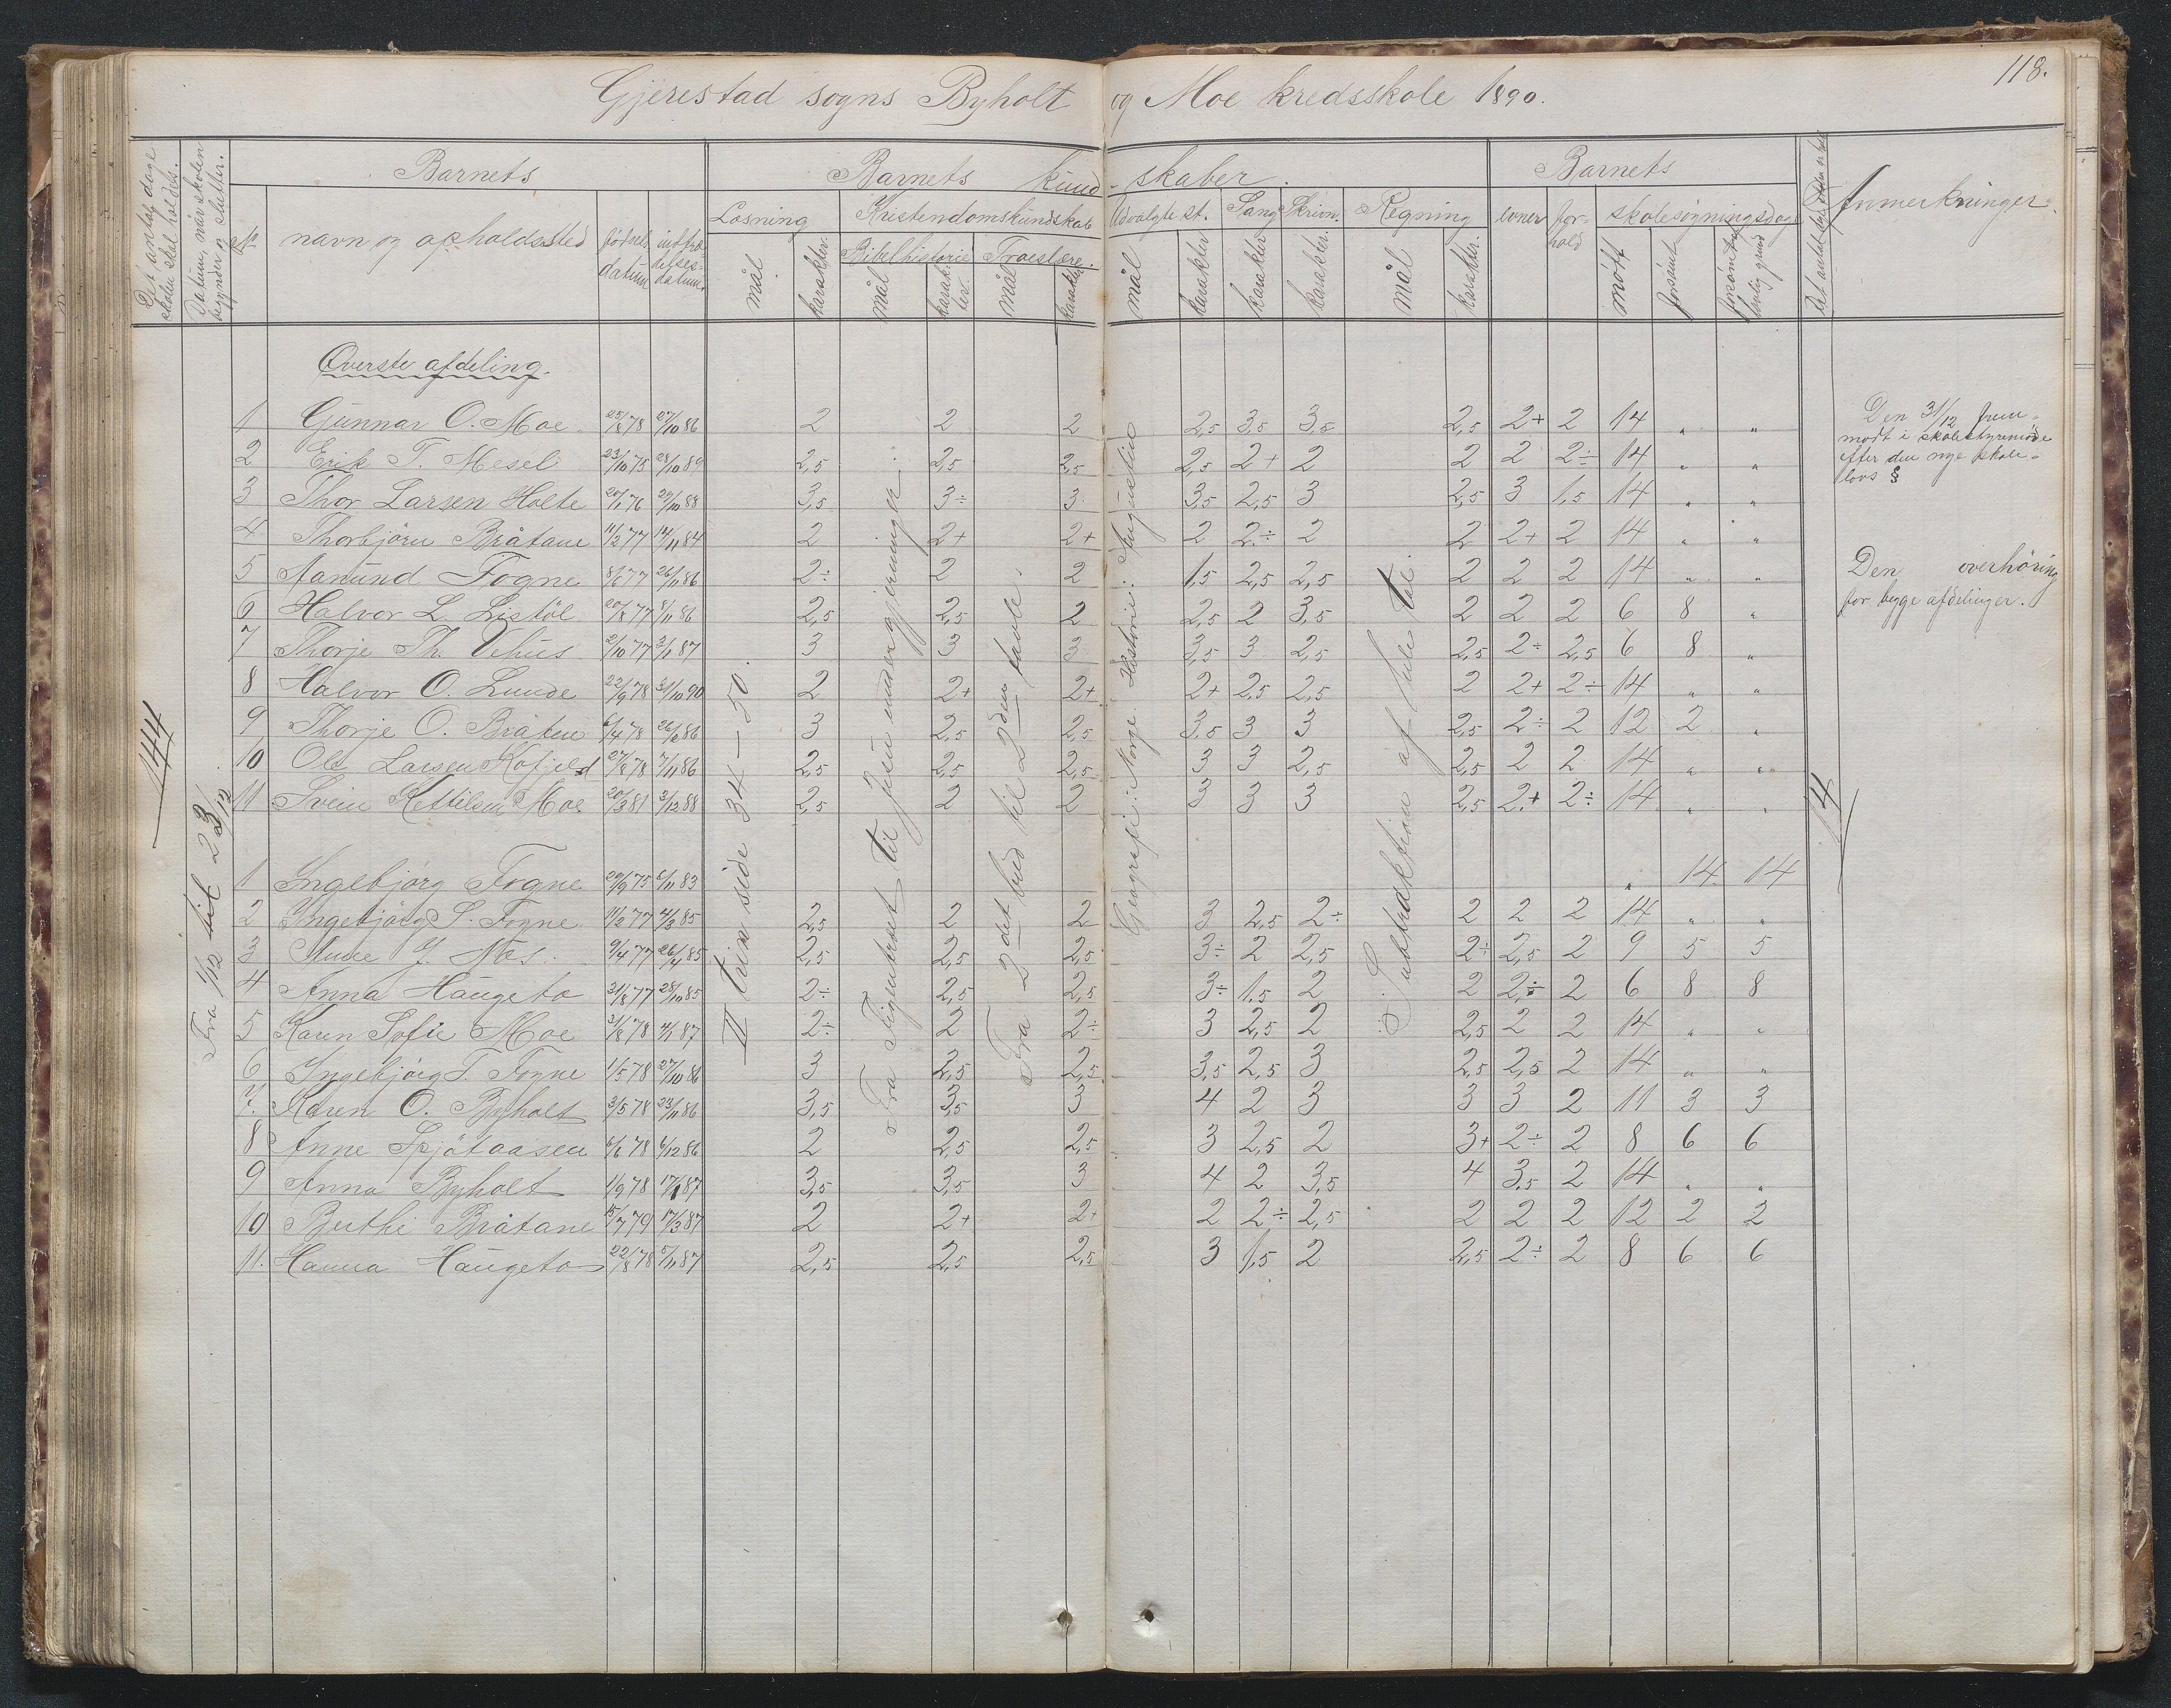 118.
Gjerestad sogns Byholt og Moe kredsskole 1890.
Det antal dage skolen skal holdes.
Datum, når skolen begynder og slutter.
No
Barnets
navn og opholdssted
fødselsdatum
indtrædelsesdatum.
Barnets kund-skaber.
Læsning
mål
karakter.
Kristendomskundskab
Bibelhistorie
mål
karakter.
Troeslære.
mål
karakter
Udvalgte st.
mål
karakter
Sang
karakter
Skrivn.
karakter.
Regning
mål
karakter.
Barnets
evner
forhold
skolesøgningsdage
mødt
forsømt
forsømt af lovlig grund
Anmerkninger.
144
Fra 1/12 til 23/12.
II trin side 34–50.
Fra Tigendraet til Jesu undergjerninger.
Fra 2det bud til 2den tavle.
Geografi: Norge. Historie: Augustin
Subtraktion af hele tal.
14
Øverste afdeling.
1 Gunnar O. Moe 25/8 78 27/10 86 2 2 2 2,5 3,5 3,5 2,5 2+ 2 14 „ „
2 Erik T. Mesel 23/10 75 28/10 89 2,5 2,5 2,5 2,5 2+ 2 2 2 2÷ 14 „ „
3 Thor Larsen Holte 20/1 76 29/10 88 3,5 3÷ 3 3,5 2,5 3 2,5 3 1,5 14 „ „
4 Thorbjørn Bråtane 11/2 77 14/11 84 2 2+ 2+ 2 2÷ 2 2 2+ 2 14 „ „
5 Aanund Fogne 8/6 77 26/11 86 2÷ 2 2 1,5 2,5 2,5 2 2 2 14 „ „
6 Halvor L. Listöl 20/8 77 8/11 86 2,5 2,5 2 2,5 2 3,5 2 2 2 6 8 „
7 Thorje Th. Vehus 2/10 77 3/1 87 3 3 3 3,5 3 2,5 2,5 2÷ 2,5 6 8 „
8 Halvor O. Lunde 22/9 78 31/10 90 2 2+ 2+ 2+ 2,5 2,5 2 2+ 2÷ 14 „ „
9 Thorje O. Bråten 6/4 78 26/2 86 3 2,5 2,5 3,5 3 3 2,5 2÷ 2 12 2 „
10 Ole Larsen Kofjeld 27/8 78 7/11 86 2,5 2,5 2,5 3 3 2,5 2,5 2 2 14 „ „
11 Svein Kettilsen Moe 20/3 81 3/12 88 2,5 2 2 3 3 3 2,5 2+ 2÷ 14 „ „
1 Ingebjörg Fogne 29/9 75 8/11 83 „ 14 14
2 Ingebjörg S. Fogne 11/2 77 4/3 85 2,5 2 2 3 2,5 2÷ 2 2 2 14 „ „
3 Anne J. Næs 9/4 77 26/4 85 2,5 2,5 2,5 3÷ 2 2,5 2÷ 2,5 2 9 5 5
4 Anna Haugeto 31/8 77 28/10 85 2÷ 2,5 2,5 3÷ 1,5 2 2 2÷ 2 6 8 8
5 Karen Sofie Moe 31/8 78 4/1 87 2÷ 2 2÷ 3 2,5 2 2,5 2 2 14 „ „
6 Ingebjörg T. Fogne 1/5 78 27/10 86 3 2,5 2,5 3,5 2,5 3 2,5 2,5 2 14 „ „
7. Karen O. Byholt 3/5 78 23/11 86 3,5 3,5 3 4 2 3 3 3 2 11 3 3
8 Anne Spjötaasen 6/6 78 6/12 86 2 2,5 2,5 3 2,5 2 3+ 2÷ 2 8 6 6
9 Anna Byholt 11/9 78 17/1 87 3,5 3,5 3 4 2 3,5 4 3,5 2 14 „ „
10 Berthe Bråtane 15/7 79 17/3 87 2 2+ 2+ 2 2÷ 2,5 2 2 2 12 2 2
11. Hanna Haugeto 22/8 78 5/11 87 2,5 2,5 2,5 3 1,5 2 2,5 2÷ 2 8 6 6
Den 31/12 frem-
mødt i skolestyremöde
efter den nye skole-
lovs §
Den overhöring
for begge afdelinger.